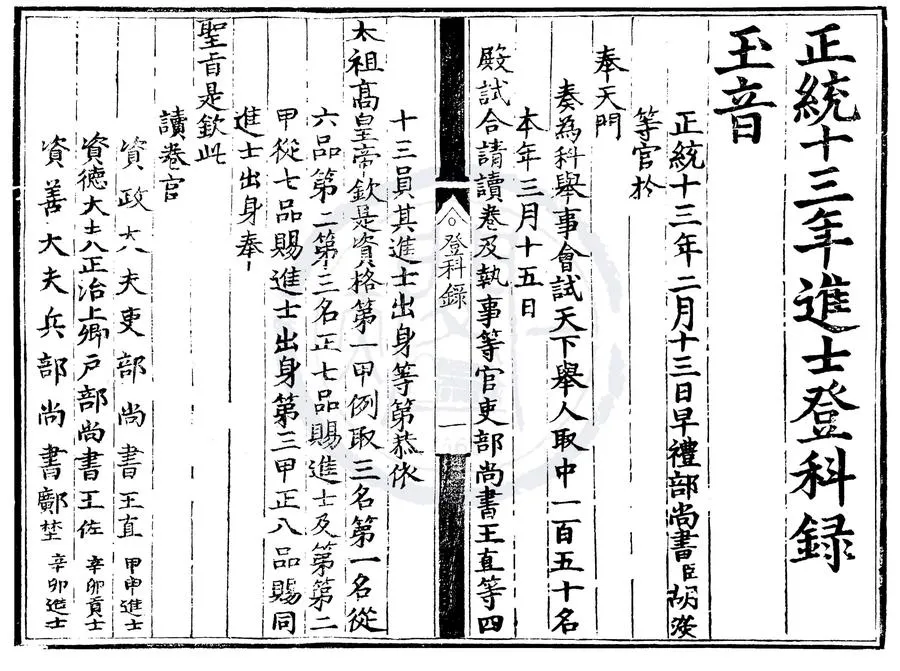 正統十三年進士登科録
玉音
正統十三年二月十三日早禮部尚書臣胡濙
等官於
奉天門
奏為科舉事會試天下舉人取中一百五十名
本年三月十五日
殿試合請讀卷及執事等官吏部尚書王直等四
登科録
一
十三員其進士出身等第恭依
太祖高皇帝欽是資格第一甲例取三名第一名從
六品第二第三名正七品賜進士及第第二
甲從七品賜進士出身第三甲正八品賜同
進士出身奉
聖旨是欽此
讀卷官
資政大夫吏部尚書王直 甲申進士
資德大夫正治上卿戶部尚書王佐 辛卯貢士
資善大夫兵部尚書鄺埜 辛卯進士